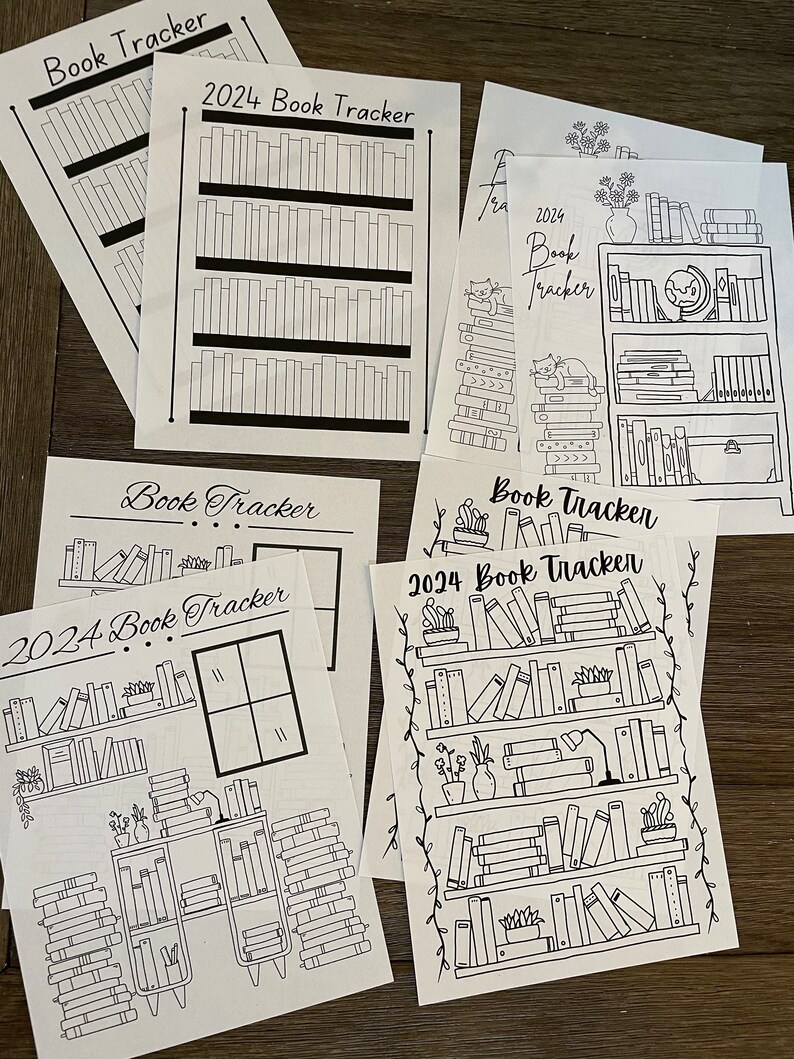 Book Tracker
2024 Book Tracker
2024
Book
Tracker
Book Tracker
2024 Book Tracker
Book Tracker
2024 Book Tracker